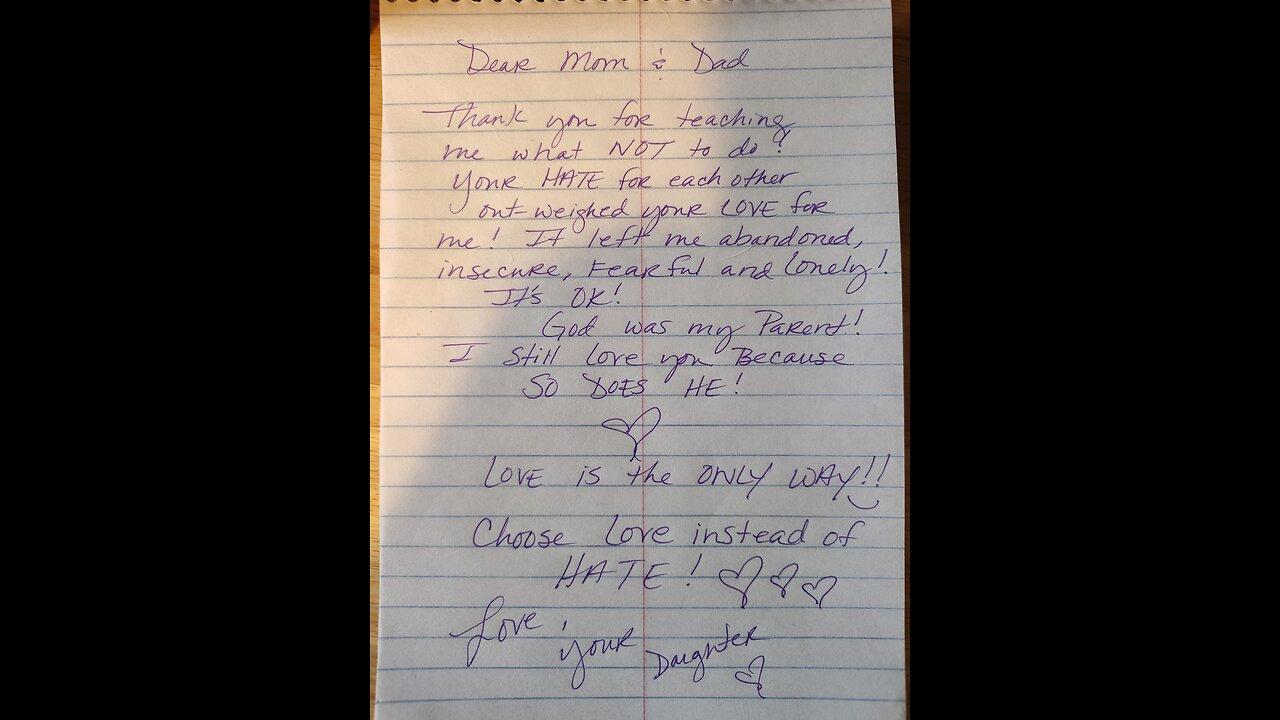 Dear Mom & Dad
Thank you for teaching
me what NOT to do!
Your HATE for each other
out-weighed your LOVE for
me! It left me abandoned,
insecure, Fearful and lonely!
It's OK!
God was my Parent!
I still love you Because
SO DOES HE!
LOVE is the ONLY WAY!!
Choose love instead of
HATE!
Love, your Daughter